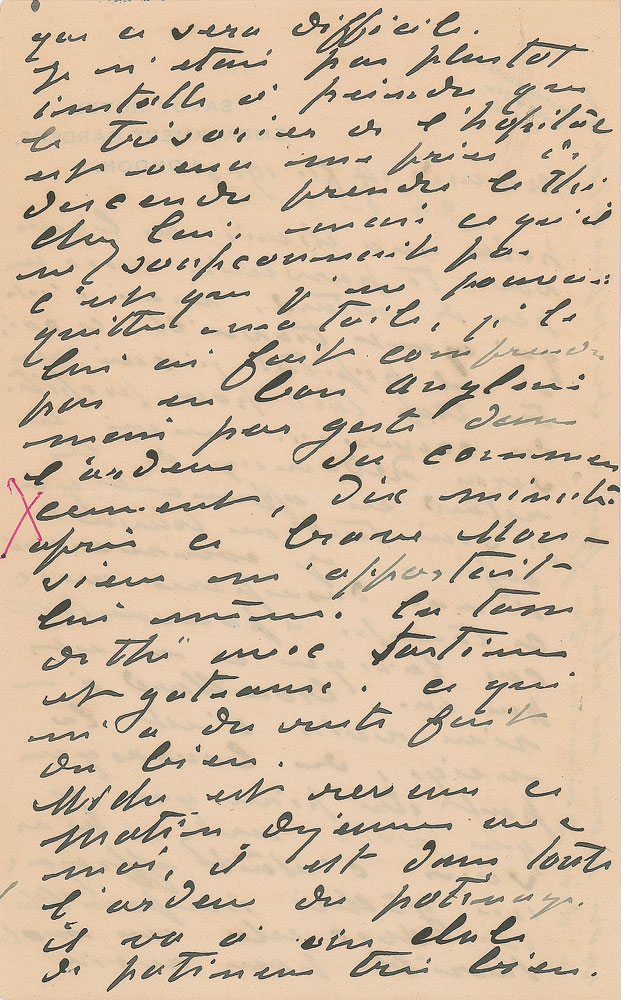 que ce sera difficile.
Je n'étais pas plustot
installé à peindre que
le trésorier de l'hopital
est venu me prier de
descendre prendre le thé
chez lui. mais ce qu'il
ne soupconnait pas
c'est que je ne pouvais
quitter ma toile, je le
lui ai fait comprendre
pas en bon anglais
mais par geste dans
l'ardeur du commen
cement, dix minutes
après ce brave Mon-
sieur m'apportait
lui même. la tasse
de thé avec tartines
et gateaux. ce qui
m'a du reste fait
du bien.
Miche est revenu ce
matin déjeuner avec
moi, il est dans toute
l'ardeur du patinage.
il va à un club
de patineurs très bien.